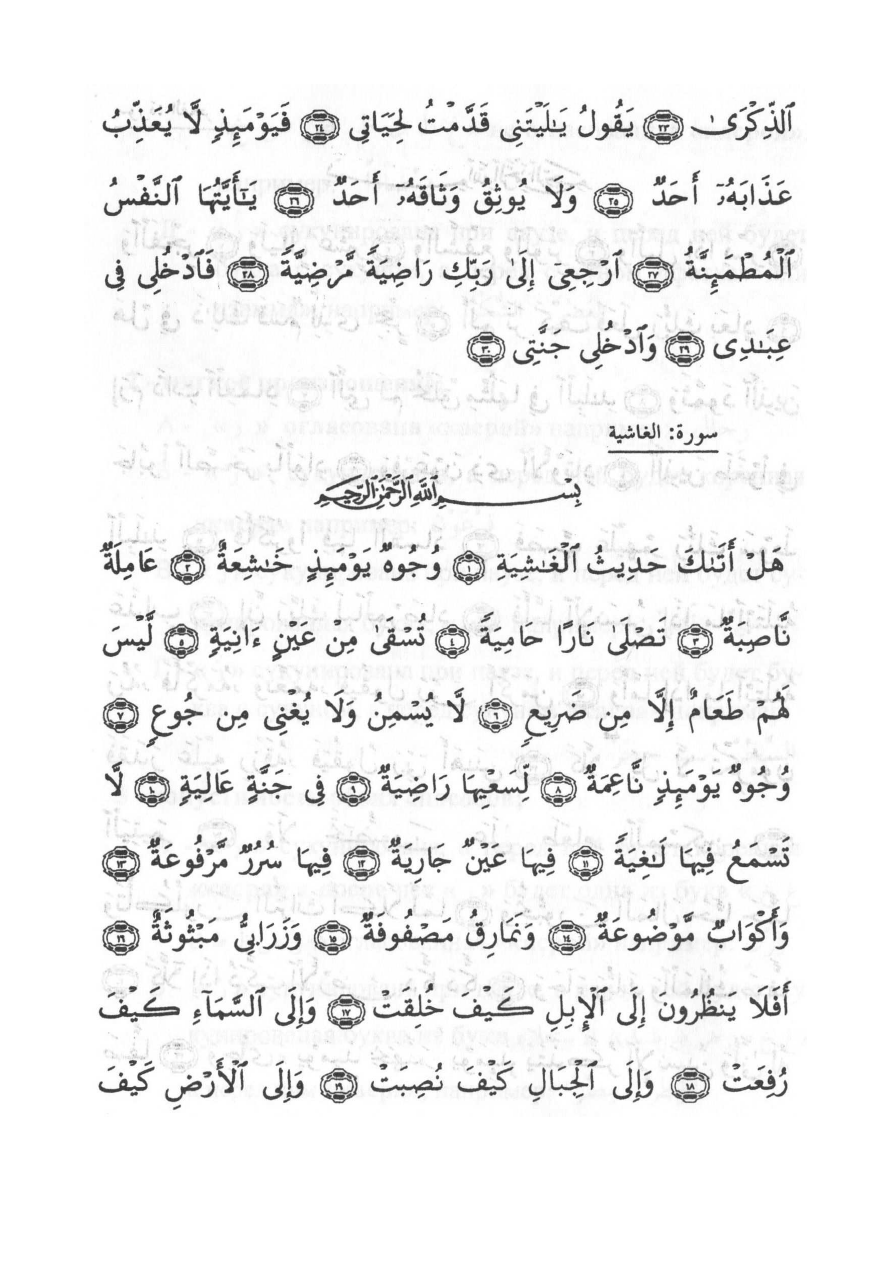 ٱلذِّكْرَىٰ ٢٣ يَقُولُ يَٰلَيْتَنِى قَدَّمْتُ لِحَيَاتِى ٢٤ فَيَوْمَئِذٍ لَّا يُعَذِّبُ
عَذَابَهُۥٓ أَحَدٌ ٢٥ وَلَا يُوثِقُ وَثَاقَهُۥٓ أَحَدٌ ٢٦ يَٰٓأَيَّتُهَا ٱلنَّفْسُ
ٱلْمُطْمَئِنَّةُ ٢٧ ٱرْجِعِىٓ إِلَىٰ رَبِّكِ رَاضِيَةً مَّرْضِيَّةً ٢٨ فَٱدْخُلِى فِى
عِبَٰدِى ٢٩ وَٱدْخُلِى جَنَّتِى ٣٠
سورة: الغاشية
بِسْمِ ٱللَّهِ ٱلرَّحْمَٰنِ ٱلرَّحِيمِ
هَلْ أَتَىٰكَ حَدِيثُ ٱلْغَٰشِيَةِ ١ وُجُوهٌ يَوْمَئِذٍ خَٰشِعَةٌ ٢ عَامِلَةٌ
نَّاصِبَةٌ ٣ تَصْلَىٰ نَارًا حَامِيَةً ٤ تُسْقَىٰ مِنْ عَيْنٍ ءَانِيَةٍ ٥ لَّيْسَ
لَهُمْ طَعَامٌ إِلَّا مِن ضَرِيعٍ ٦ لَّا يُسْمِنُ وَلَا يُغْنِى مِن جُوعٍ ٧
وُجُوهٌ يَوْمَئِذٍ نَّاعِمَةٌ ٨ لِّسَعْيِهَا رَاضِيَةٌ ٩ فِى جَنَّةٍ عَالِيَةٍ ١٠ لَّا
تَسْمَعُ فِيهَا لَٰغِيَةً ١١ فِيهَا عَيْنٌ جَارِيَةٌ ١٢ فِيهَا سُرُرٌ مَّرْفُوعَةٌ ١٣
وَأَكْوَابٌ مَّوْضُوعَةٌ ١٤ وَنَمَارِقُ مَصْفُوفَةٌ ١٥ وَزَرَابِىُّ مَبْثُوثَةٌ ١٦
أَفَلَا يَنظُرُونَ إِلَى ٱلْإِبِلِ كَيْفَ خُلِقَتْ ١٧ وَإِلَى ٱلسَّمَآءِ كَيْفَ
رُفِعَتْ ١٨ وَإِلَى ٱلْجِبَالِ كَيْفَ نُصِبَتْ ١٩ وَإِلَى ٱلْأَرْضِ كَيْفَ